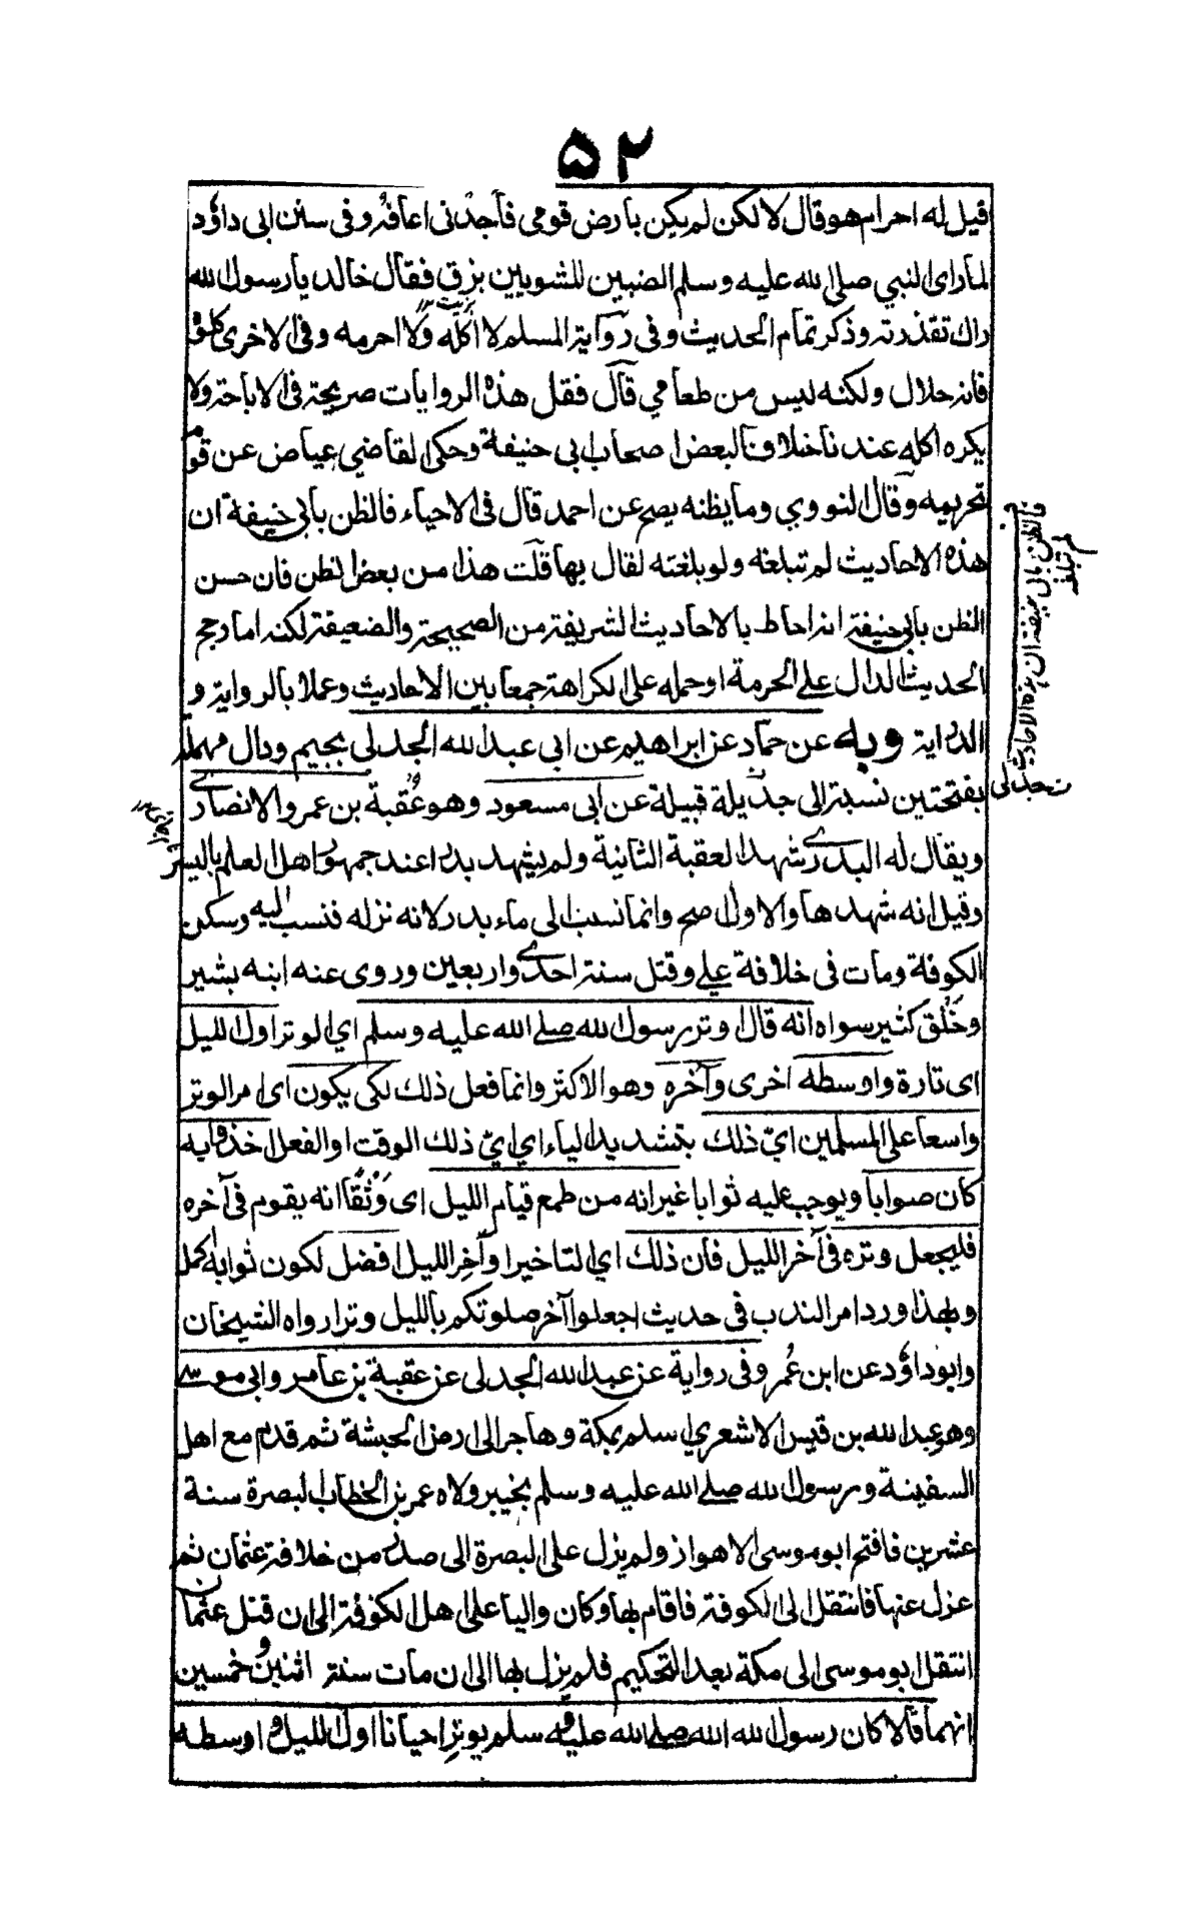 ۵۲
قيل له احرام هو قال لا لكن لم يكن بارض قومي فاجدنى اعافه وفى سنن ابى داؤد
لما راى النبي صلى الله عليه وسلم الضبين المشويين بزق فقال خالد يا رسول الله
راك تقذرته وذكر تمام الحديث وفى رواية المسلم لا اكله ولا احرمه وفى الاخرى كلوه
فانه حلال ولكنه ليس من طعامي قال فقل هذه الروايات صريحة فى الاباحة ولا
يكره اكله عندنا خلافا لبعض اصحاب ابى حنيفة وحكى القاضي عياض عن قوم
تحريمه وقال النووي وما يظنه يصح عن احمد قال فى الاحياء فالظن بابى حنيفة ان
هذه الاحاديث لم تبلغه ولو بلغته لقال بها قلت هذا من بعض الظن فان حسن
الظن بابى حنيفة انه احاط بالاحاديث الشريفة من الصحيحة والضعيفة لكنه اما رجح
الحديث الدال على الحرمة او حمله على الكراهة جمعا بين الاحاديث وعملا بالرواية و
الدراية وبه عن حماد عن ابراهيم عن ابى عبد الله الجدلى بجيم ودال مهملة
بفتحتين نسبة الى جديلة قبيلة عن ابى مسعود وهو عُقبة بن عمرو الانصارى
ويقال له البدرى شهد العقبة الثانية ولم يشهد بدرا عند جمهور اهل العلم بالسير
وقيل انه شهدها والاول اصح وانما نسب الى ماء بدر لانه نزله فنسب اليه وسكن
الكوفة ومات فى خلافة على وقتل سنة احدى واربعين وروى عنه ابنه بشير
وخَلق كثير سواه انه قال اوتر رسول الله صلى الله عليه وسلم اي الوتر اول الليل
اى تارة واوسطه اخرى وآخره وهو الاكثر وانما فعل ذلك لكى يكون اى امر الوتر
واسعا على المسلمين ايّ ذلك بتشديد الياء اي ايّ ذلك الوقت او الفعل اخذوا به
كان صوابا ويوجب عليه ثوابا غير انه من طمع قيام الليل اى وَثُقَ انه يقوم فى آخره
فليجعل وتره فى آخر الليل فان ذلك اي التاخير او آخر الليل افضل لكون ثوابه اكمل
وبهذا ورد امر الندب فى حديث اجعلوا آخر صلوتكم بالليل وترا رواه الشيخان
وابو داؤد عن ابن عُمر وفى رواية عن عبد الله الجدلى عن عقبة بن عامر وابى موسى
وهو عبد الله بن قيس الاشعري اسلم بمكة وهاجر الى ارض الحبشة ثم قدم مع اهل
السفينة ورسول الله صلى الله عليه وسلم بخيبر ولاه عمر بن الخطاب البصرة سنة
عشرين فافتح ابو موسى الاهواز ولم يزل على البصرة الى صدر من خلافة عثمان ثم
عزل عنها فانتقل الى الكوفة فاقام بها وكان واليا على اهل الكوفة الى ان قتل عثمان
انتقل ابو موسى الى مكة بعد التحكيم فلم يزل بها الى ان مات سنة اثنين وخمسين
انهما قالا كان رسول الله الله صلى الله عليه وسلم يوتر احيانا اول الليل واوسطه
فالظن بابى حنيفة ان هذه الاحاديث
لم تبلغه
ن جدلى